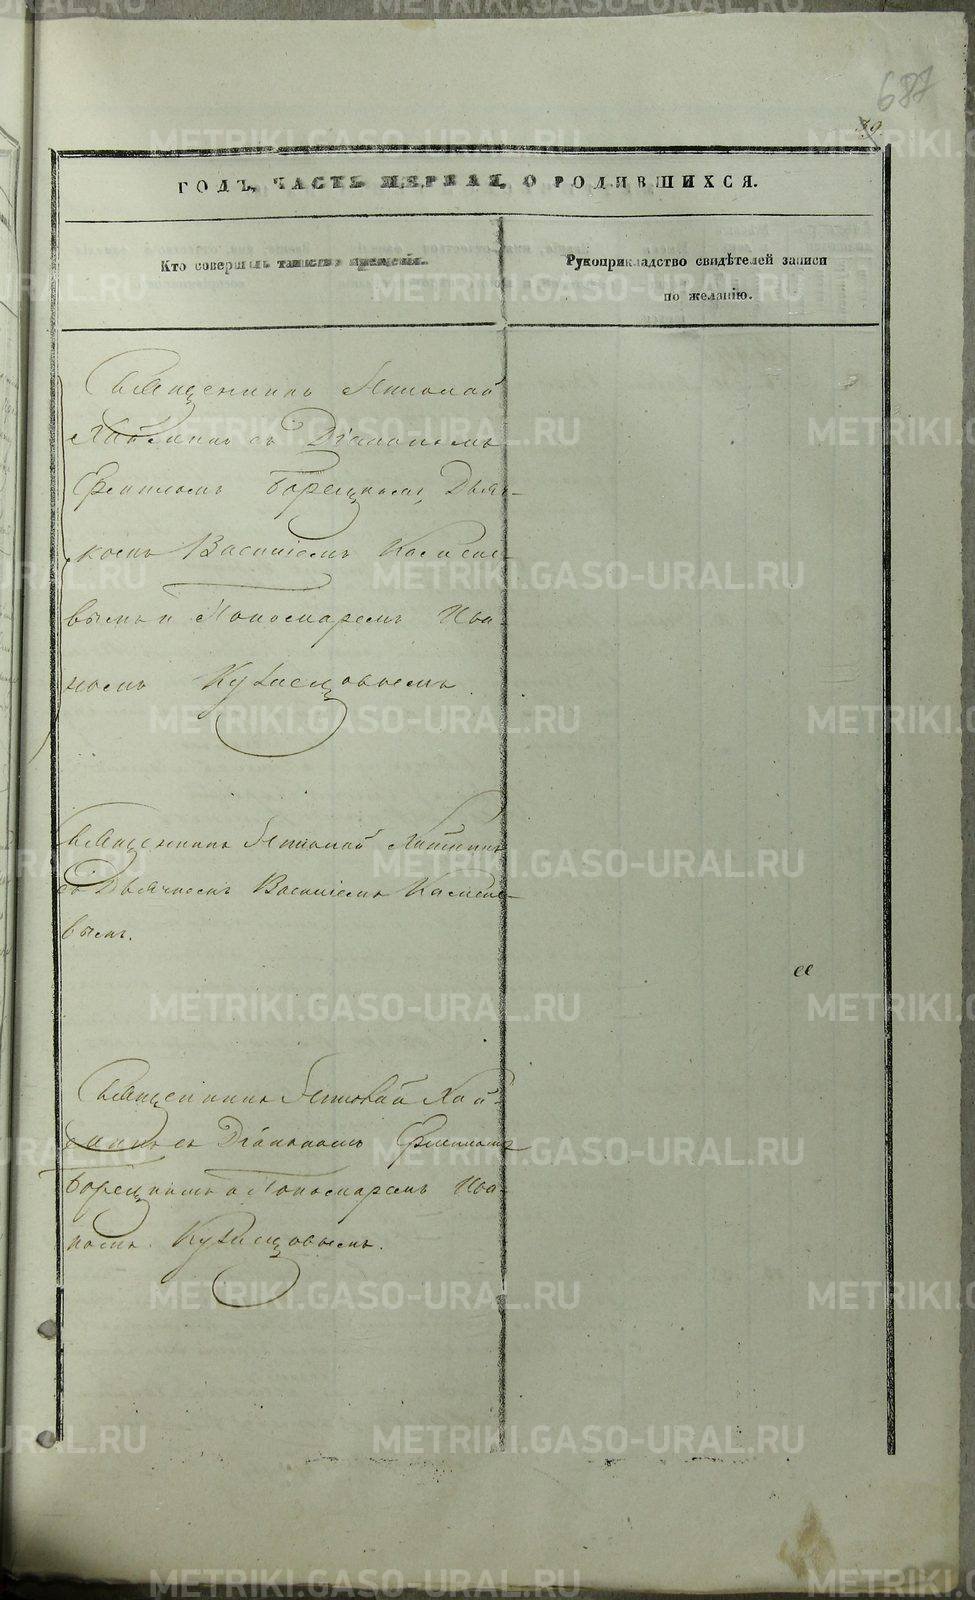 687
39.
ГОДЪ, ЧАСТЬ ПЕРВАЯ, О РОДИВШИХСЯ.
Кто совершилъ таинство крещенія.
Рукоприкладство свидѣтелей записи
по желанію.
Священникъ Николай
съ Діакономъ
Борецкимъ, Дьяч-
комъ Василіемъ Камене-
вымъ и Пономаремъ Ива-
номъ Кузнецовымъ
Священникъ Николай
съ Дьячкомъ Василіемъ Камене-
вымъ.
Священникъ Николай
съ Діакономъ
Борецкимъ и Пономаремъ Ива-
номъ Кузнецовымъ.
METRIKI.GASO-URAL.RU